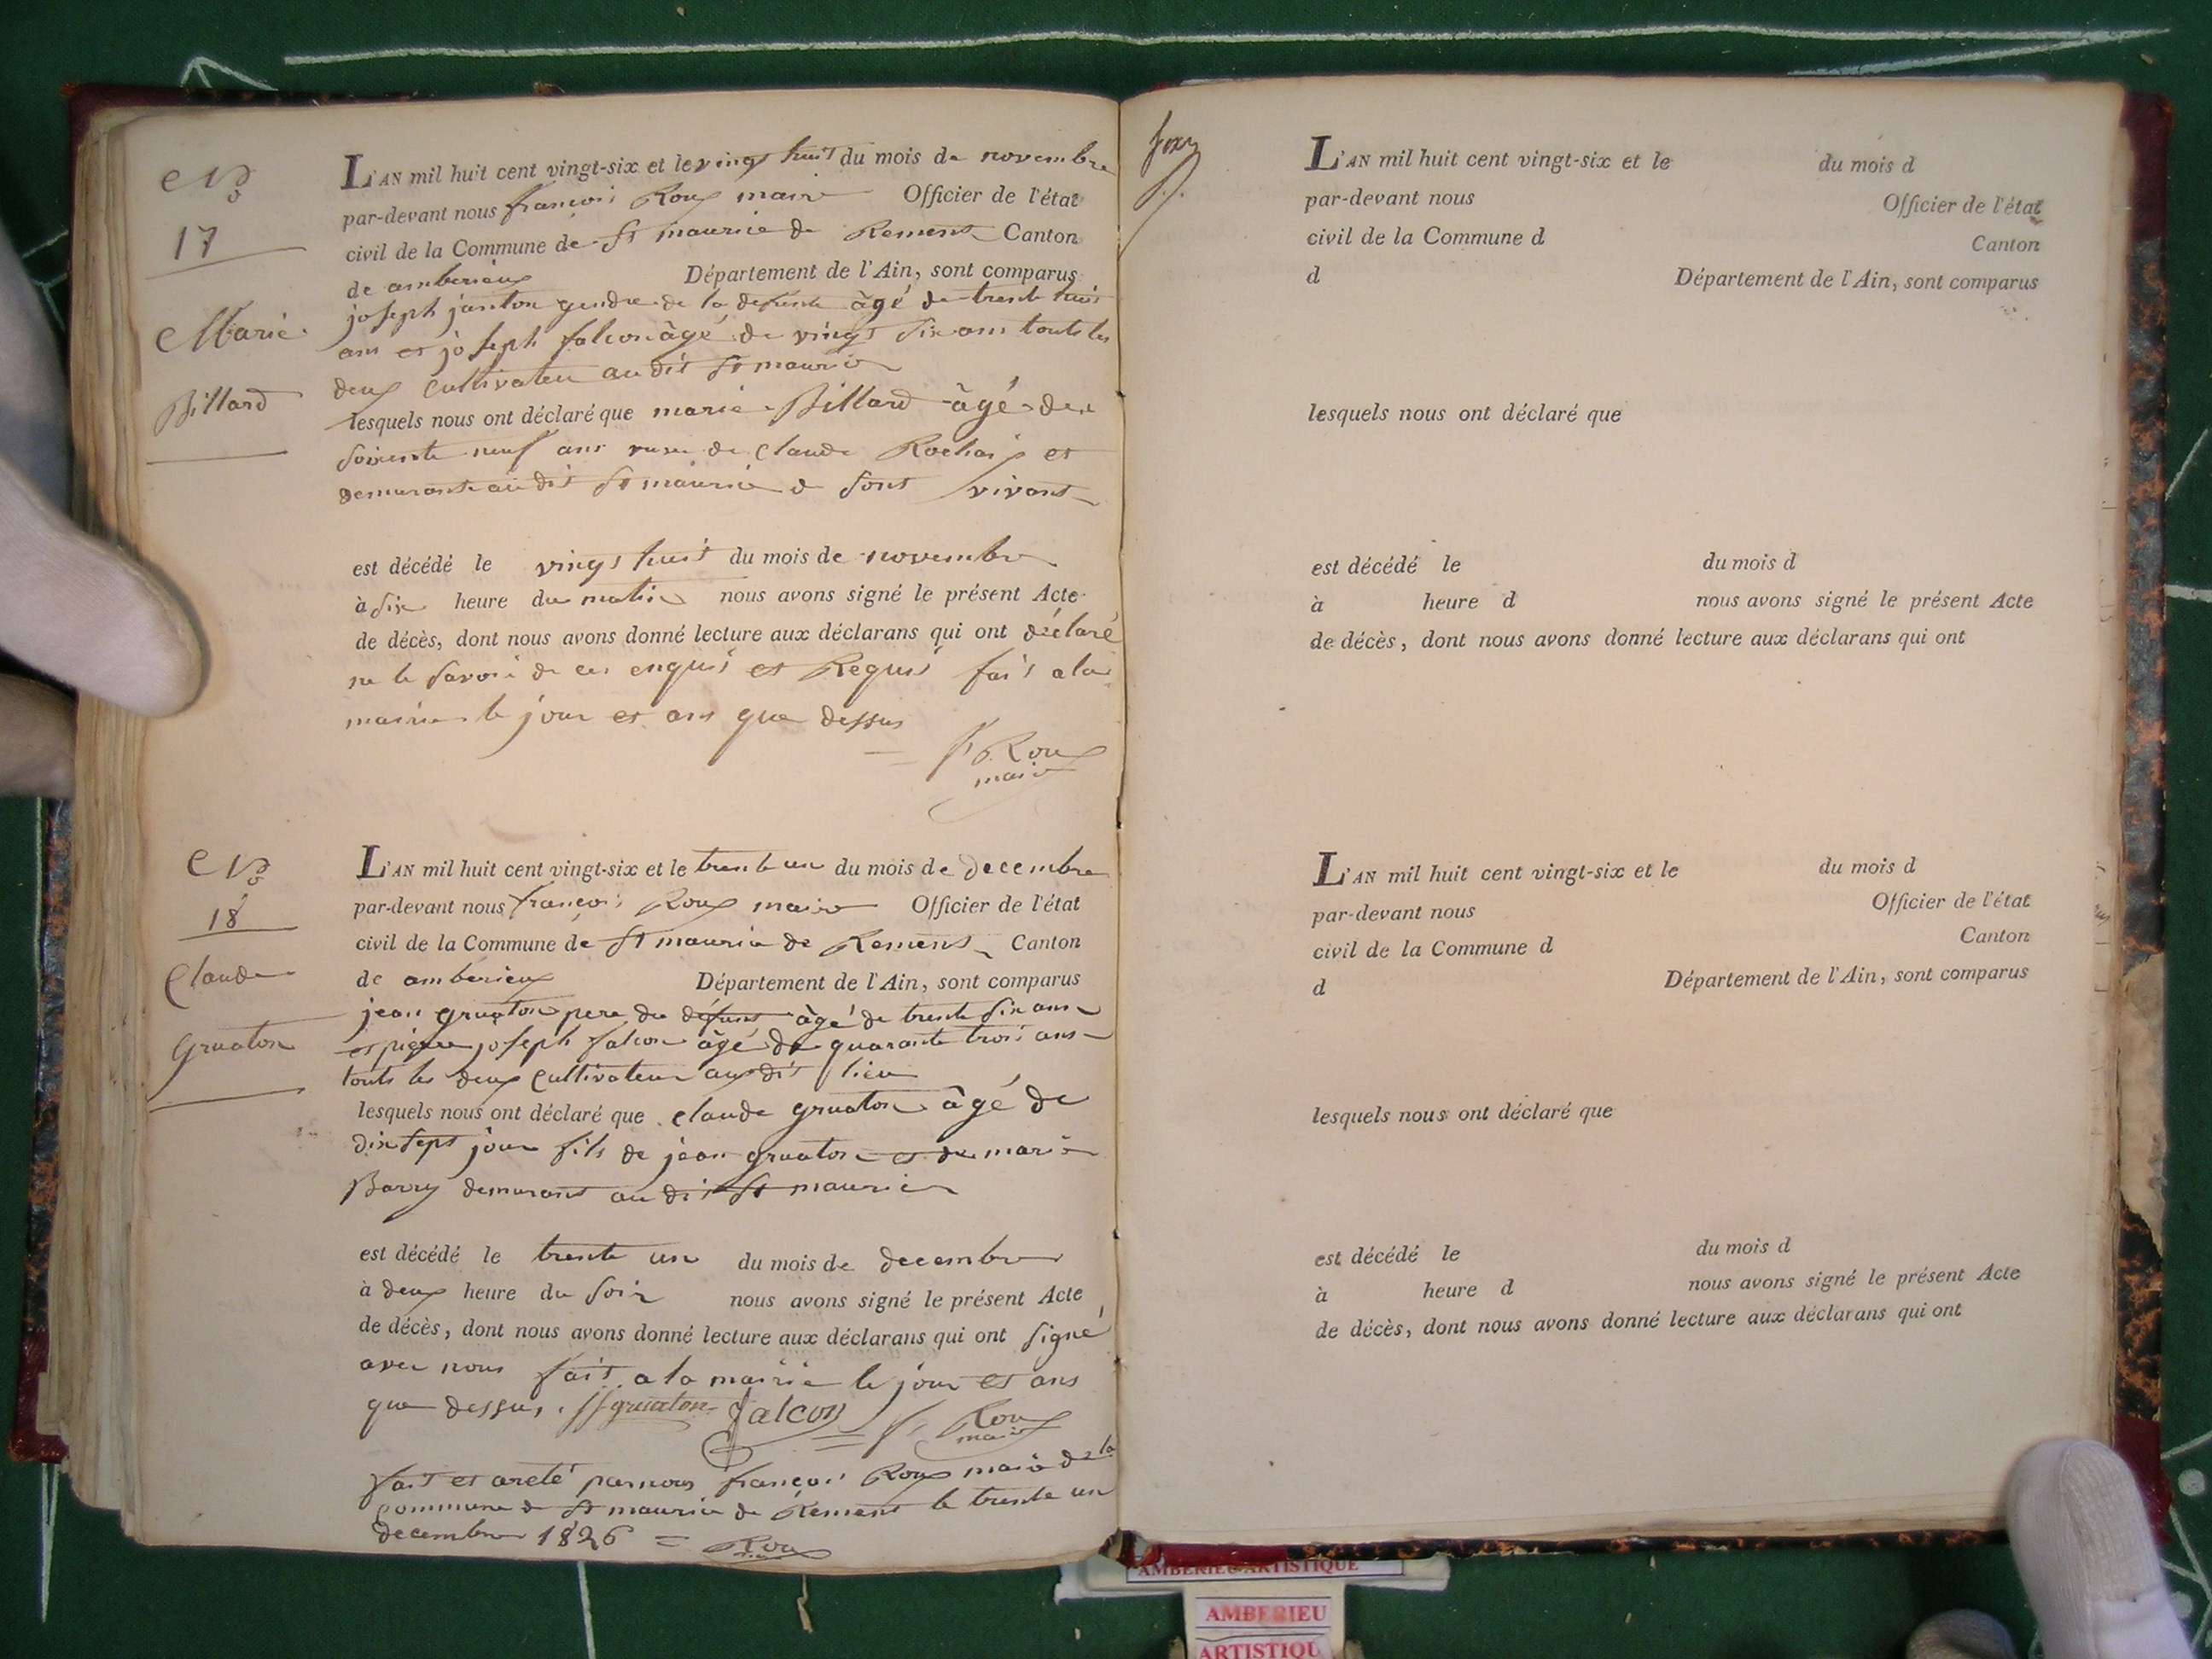 No
17
Marie
Billard
L'AN mil huit cent vingt-six et le vingt huit du mois de novembre
par-devant nous françois Roux maire Officier de l'état
civil de la Commune de St maurice de Remens Canton
de amberieux Département de l'Ain, sont comparus
joseph janton gendre de la defunte âgé de trente huit
ans et joseph falcon âgé de vingt six ans touts les
deux Cultivateur au dit St maurice
lesquels nous ont déclaré que marie Billard âgé de
soixente neuf ans vuve de Claude Rochaix et
demurante au dit St maurice de sont vivant
est décédé le vingt huit du mois de novembre
à six heure du matin nous avons signé le présent Acte
de décès, dont nous avons donné lecture aux déclarans qui ont déclaré
ne le savoir de ces enquis et Requis fait a la
mairie le jour et ans que dessus
f Roux
maire
No
18
Claude
Gruaton
L'AN mil huit cent vingt-six et le trente un du mois de decembre
par-devant nous françois Roux maire Officier de l'état
civil de la Commune de St maurice de Remens Canton
de amberieux Département de l'Ain, sont comparus
jean gruaton pere du défunt âgé de trente six ans
et pierre joseph falcon âgé de quarante trois ans
touts les deux Cultivateur au dit lieu
lesquels nous ont déclaré que claude gruaton âgé de
dix sept jour fils de jean gruaton et de marie
Barry demurant au dit St maurice
est décédé le trente un du mois de decembre
à deux heure du soir nous avons signé le présent Acte
de décès, dont nous avons donné lecture aux déclarans qui ont signé
avec nous fait a la mairie le jour et ans
que dessus. gruaton falcon f Roux
maire
fait et areté par nous françois Roux maire de la
commune de St maurice de Remens le trente un
decembre 1826 = Roux
L'AN mil huit cent vingt-six et le du mois d
par-devant nous Officier de l'état
civil de la Commune d Canton
d Département de l'Ain, sont comparus
lesquels nous ont déclaré que
est décédé le du mois d
à heure d nous avons signé le présent Acte
de décès, dont nous avons donné lecture aux déclarans qui ont
L'AN mil huit cent vingt-six et le du mois d
par-devant nous Officier de l'état
civil de la Commune d Canton
d Département de l'Ain, sont comparus
lesquels nous ont déclaré que
est décédé le du mois d
à heure d nous avons signé le présent Acte
de décès, dont nous avons donné lecture aux déclarans qui ont
AMBERIEU ARTISTIQUE
AMBERIEU
ARTISTIQU